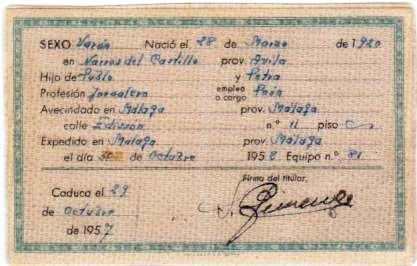 SEXO Varón Nació el 28 de Marzo de 1920
en Narros del Castillo prov. Avila
Hijo de Pablo y Petra
Profesión Jornalero empleo o cargo Peón
Avecindado en Málaga prov. Málaga
calle Edisson n.º 11 piso
Expedido en Málaga prov. Málaga
el día de Octubre 1952 Equipo n.º 81
Firma del titular,
Caduca el 29
de Octubre
de 1957